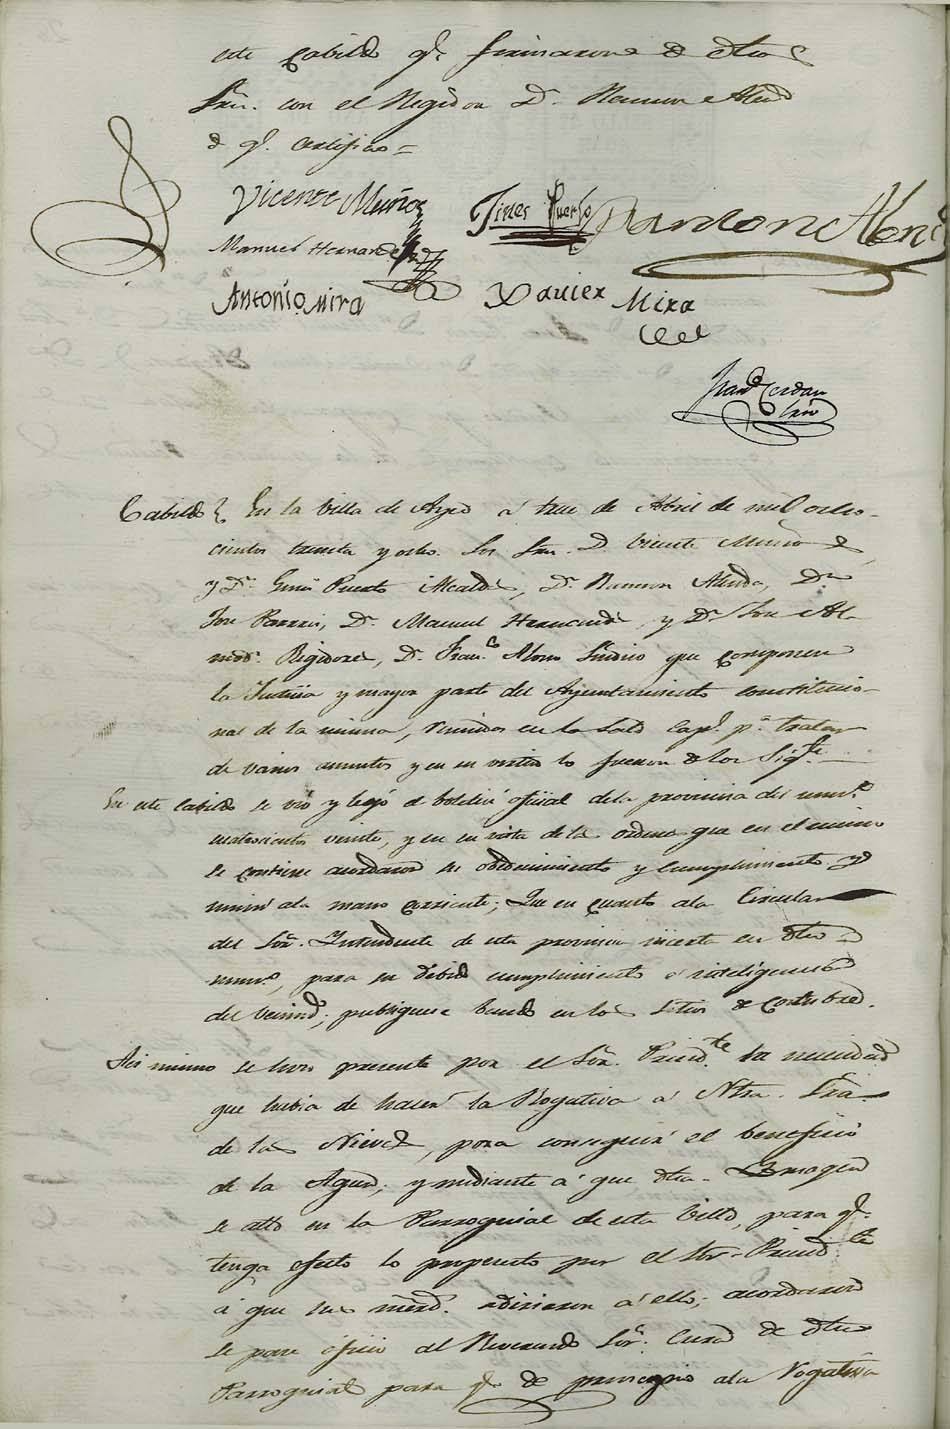 este Cabildo q.e firmaron de dhos
Sres. con el Regidor D. Ramon Alend
de q.e certifico =
Vicente Muñoz
Gines Puerto
Ramon Alend
Manuel Hernandez
Antonio Mira
Xavier Mira
Fran.co Cerdan
Srio
Cabildo En la Villa de Aspe á trece de Abril de mil ocho-
cientos treinta y ocho. Los Sres. D. Vicente Muñoz
y D.n Gines Puerto Alcaldes, D.n Ramon Alenda, D.n
Jose Pavia, D.n Manuel Hernandez, y D.n Jose Al-
mod.r Regidores, D.n Fran.co Alonso Sindico que componen
la Justicia y mayor parte del Ayuntamiento constitucio-
nal de la misma, reunidos en la Sala Cap.r p.a tratar
de varios asuntos y en su vista lo fueron de los Sig.tes
En este Cabildo se vio y leyó el boletin oficial de la provincia del num.o
cuatrocientos veinte, y en su vista de las ordenes que en el mismo
se contiene acordaron su obedecimiento y cumplimiento, y
unirse ala mano corriente; Que en cuanto ala Circular
del Sor. Intendente de esta provincia inserta en dho
num.o, para su debido cumplimiento é inteligencia
del vecind.o; publiquese bando en los Sitios de Costumbre.
Asi mismo se hizo presente por el Sor. Presid.te la necesidad
que habia de hacer la Rogativa á Ntra. Sra.
de las Nieves, para conseguir el beneficio
de la Agua; y mediante á que dha. Imagen
se alla en la Parroquial de esta Villa, para q.e
tenga efecto lo propuesto por el Sor. Presid.te
á que sus mercd.s adirieron á ello; acordaron
se pase oficio al Reverendo Sor. Cura de dha
Parroquial para q.e de principio ala Rogativa